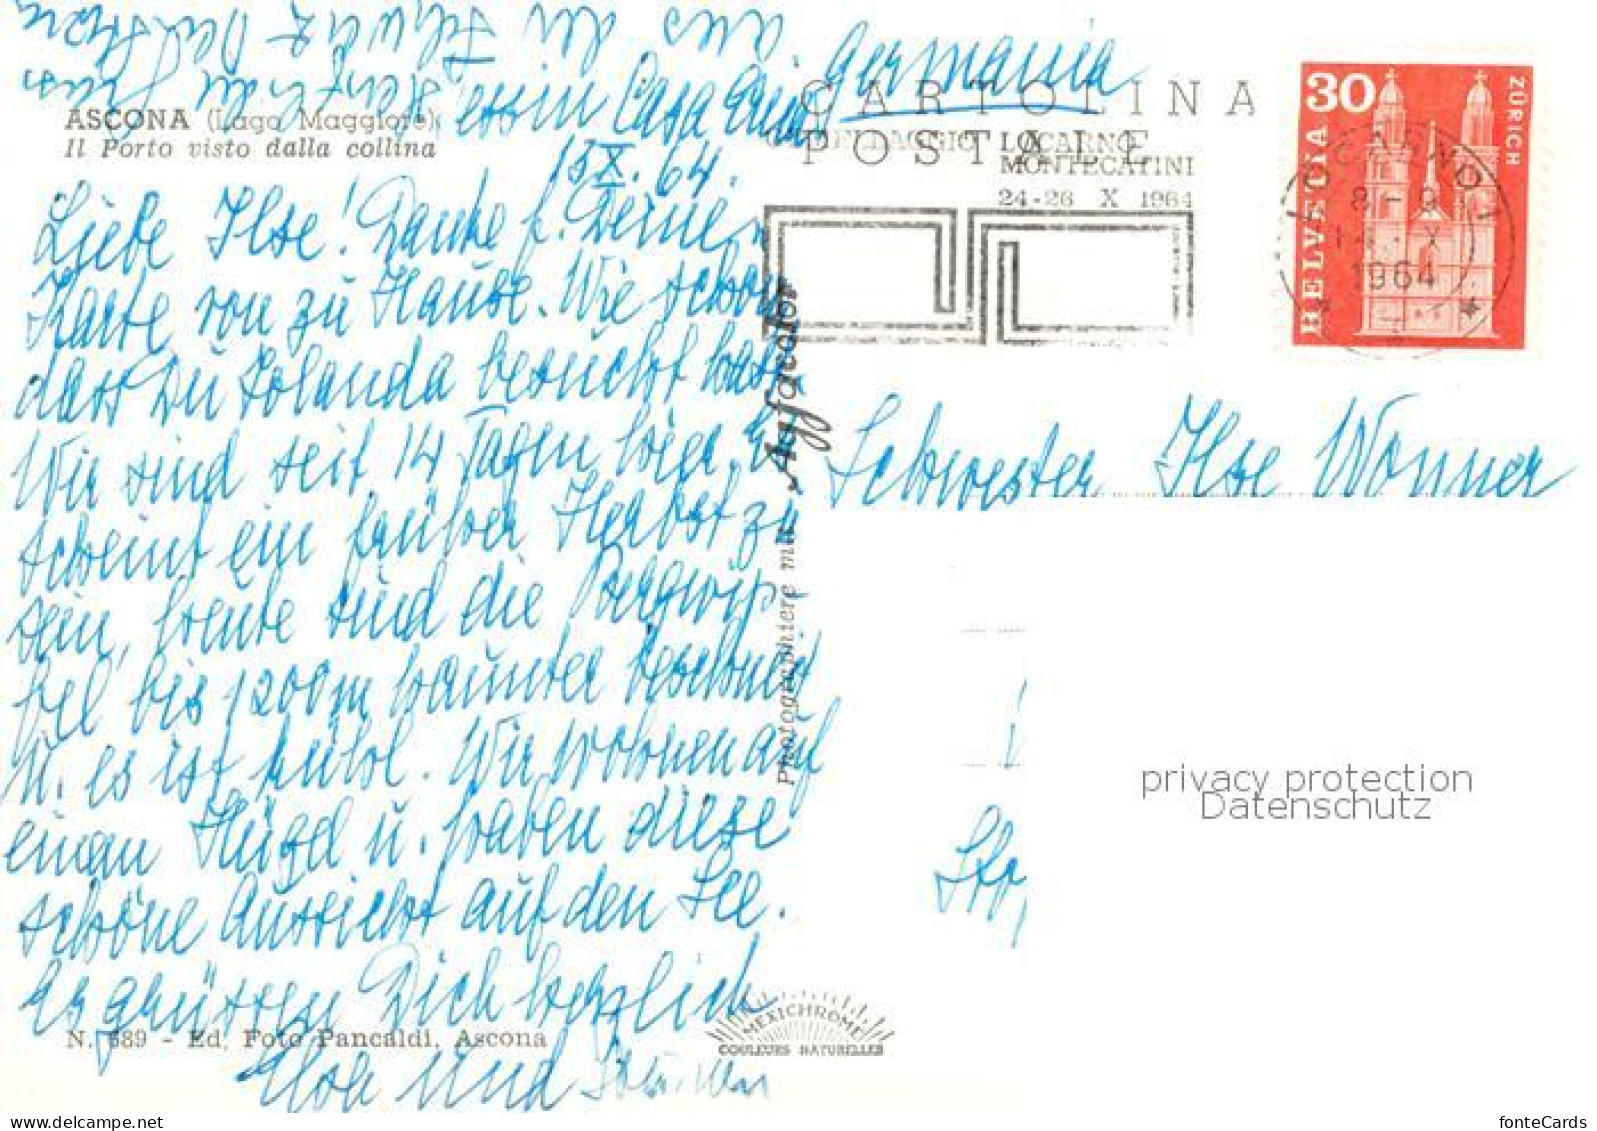 aus der Schweiz
Germania
CARTOLINA
POSTALE
ASCONA (Lago Maggiore)
Il Porto visto dalla collina
Casa
X. 64.
Liebe Ilse! Danke f. Deine
Karte von zu Hause. Wie schön
dass Du Jolanda besucht hast.
Wir sind seit 14 Tagen hier. Es
scheint ein früher Herbst zu
sein, heute sind die Berggip-
fel bis 1200m herunter beschneit
u. es ist kühl. Wir wohnen auf
einem Hügel u. haben diese
schöne Aussicht auf den See.
Es grüssen Dich herzlich
und
N. 689 - Ed. Foto Pancaldi, Ascona
MEXICHROME
COULEURS NATURELLES
Photographiere mit Agfacolor
LOCARNO
MONTECATINI
24-26 X 1964
30
ZÜRICH
HELVETIA
LOCARNO 1
8-9
X
1964
Schwester Ilse Wonner
privacy protection
Datenschutz
www.delcampe.net
fonteCards